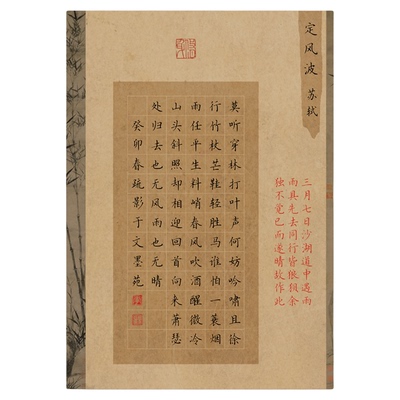 定风波 苏轼
三月七日沙湖道中遇雨
雨具先去同行皆狼狈余
独不觉已而遂晴故作此
莫听穿林打叶声何妨吟啸且徐
行竹杖芒鞋轻胜马谁怕一蓑烟
雨任平生料峭春风吹酒醒微冷
山头斜照却相迎回首向来萧瑟
处归去也无风雨也无晴
癸卯春疏影于文墨苑